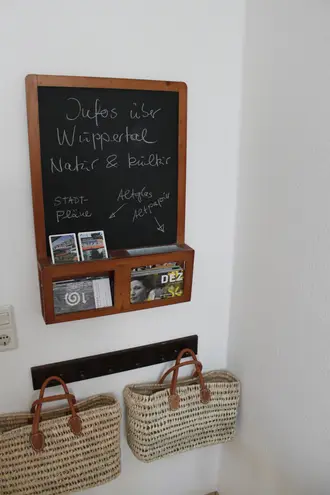 Infos über
Wuppertal
Natur & kultur
STADT-
Pläne
Altglas
Altpapier
DEZ